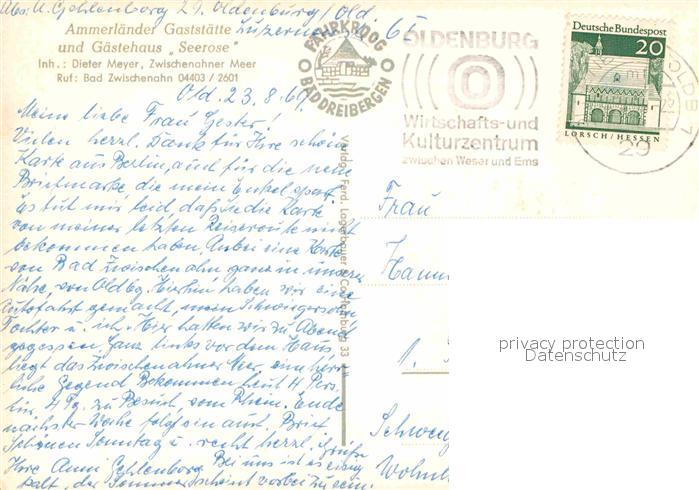 Abs: A. Gehlenborg 29 Oldenburg/Old.
Luzerner 65
Ammerländer Gaststätte
und Gästehaus „Seerose"
Inh.: Dieter Meyer, Zwischenahner Meer
Ruf: Bad Zwischenahn 04403 / 2601
FÄHRKROOG
BAD DREIBERGEN
OLDENBURG
Wirtschafts-und
Kulturzentrum
zwischen Weser und Ems
Deutsche Bundespost
20
LORSCH/HESSEN
29
Old. 23.8.69
Meine liebe Frau Gester!
Vielen herzl. Dank für Ihre schöne
Karte aus Berlin, und für die neue
Briefmarke die mein Enkel spart.
Es tut mir leid daß Sie die Karte
von meiner letzten Reiseroute nicht
bekommen haben. Anbei eine Karte
von Bad Zwischenahn ganz in unserer
Nähe, von Oldbg. Hierhin haben wir eine
Autofahrt gemacht, mein Schwiegersohn
Tochter u. ich. Hier hatten wir zu Abend
gegessen. Ganz links vor dem Haus,
liegt das Zwischenahner Meer, eine herr
liche Gegend. Bekommen heut 4 Pers.
für 4 Tg. zu Besuch, vom Rhein. Ende
nächster Woche folgt ein ausf. Brief.
Schönen Sonntag u. recht herzl. Grüße
Ihre Anni Gehlenborg. Bei uns ist es
kalt, der Sommer scheint vorbei zu sein.
Verlag Ferd. Lagerbauer & Co., Hamburg 33
Frau
Hann
1.
Schweg
Wohn
privacy protection
Datenschutz